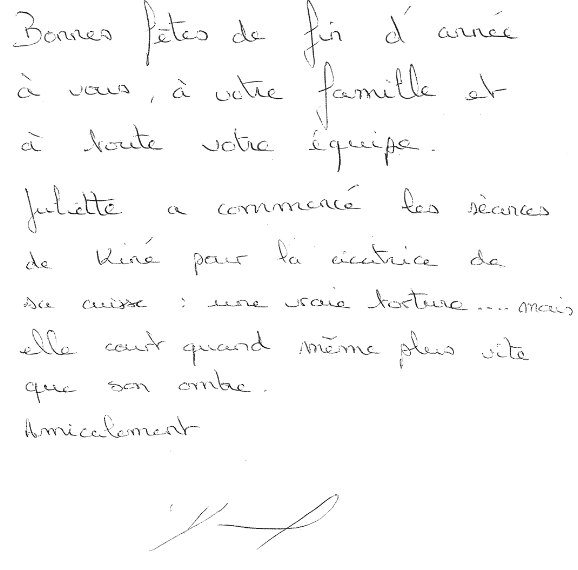 Bonnes fêtes de fin d'année
à vous, à votre famille et
à toute votre équipe.
Juliette a commencé les séances
de Kiné pour la cicatrice de
sa cuisse : une vraie torture.... mais
elle court quand même plus vite
que son ombre.
Amicalement